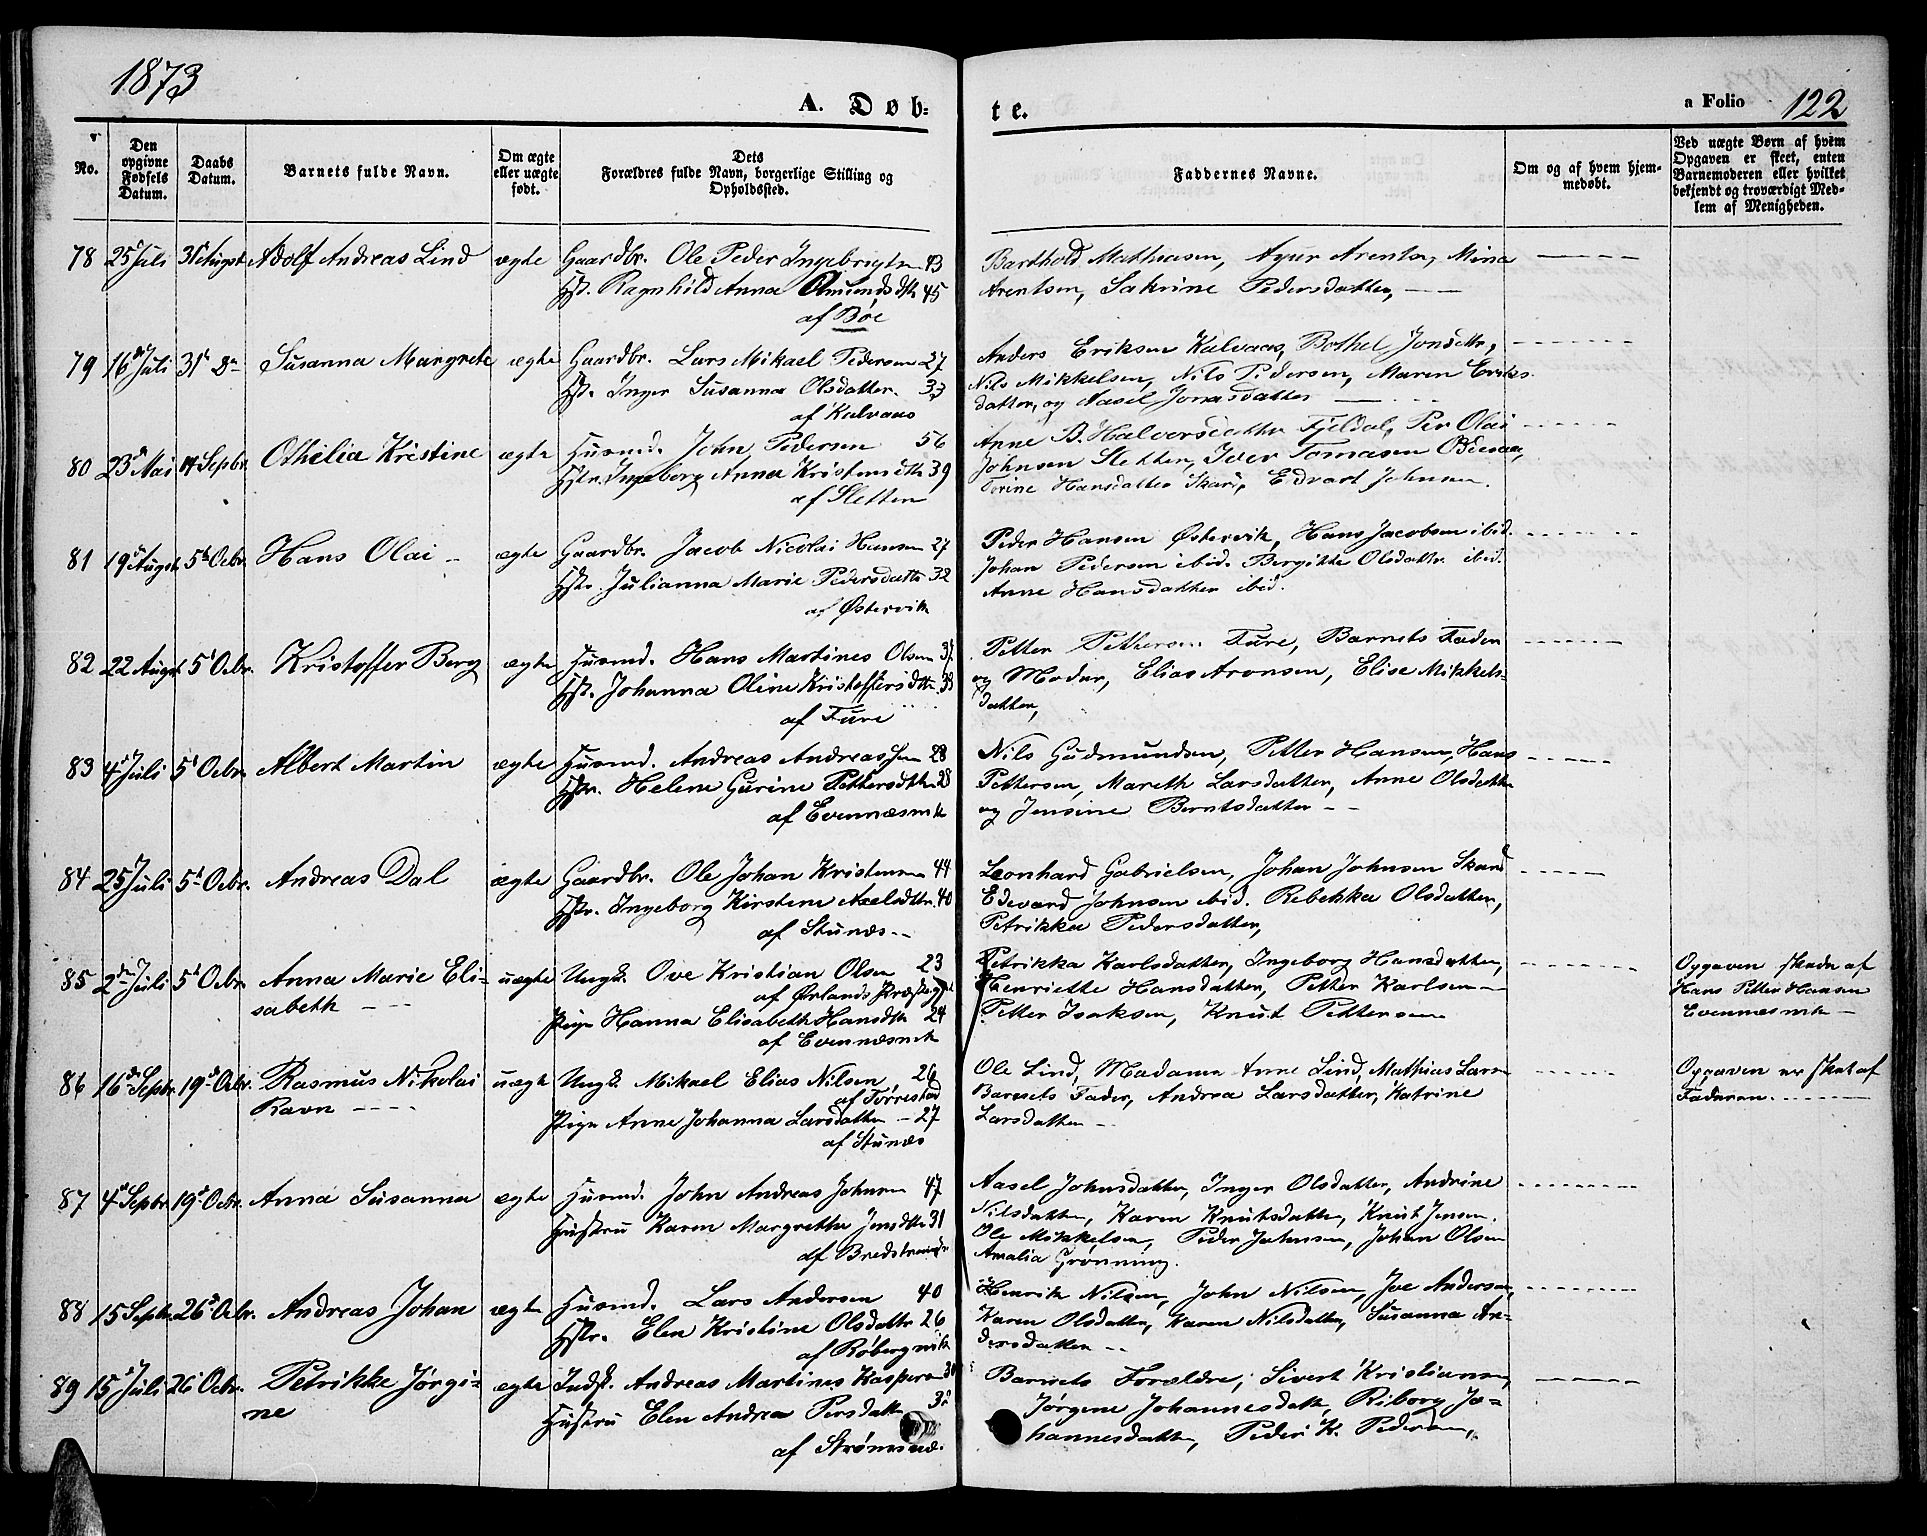 1873
A. Døb-
te.
a Folio 122
No.
Den opgivne Fødsels Datum.
Daabs Datum.
Barnets fulde Navn.
Om ægte eller uægte født.
Dets Forældres fulde Navn, borgerlige Stilling og Opholdssted.
Faddernes Navne.
Om og af hvem hjemmedøbt.
Ved uægte Børn af hvem Opgaven er skeet, enten Barnemoderen eller hvilket bekjendt og troværdigt Medlem af Menigheden.
78 25 Juli 31 Augst Adolf Andreas Lind ægte Gaardbr. Ole Peder Ingebrigtsn 43
Hst. Ragnhild Anna Amundsdtr 45
af Boe
Barthold Mathiasen, Arentsn, Mina
Arentsen, Sakrine Pedersdatter,
79 16 Juli 31 Do Susanna Margrete ægte Gaardbr. Lars Mikael Pedersen 37
Hst. Inger Susanna Olsdatter 33
af Kulvaas
Anders Eriksen Kulvaas, Bothel Jonsdtr,
Nils Mikkelsen, Nils Pedersen, Maren Eriks-
datter, og Aasel Jonasdatter
80 23 Mai 14 Sepbr. Othilia Kristine ægte Husmd. John Pedersen 56
Hstr. Ingeborg Anna Kristensdtr 39
af Sletten
Anne B. Halvorsdatter Fjeldal, Per Olai
Johnsen Sletten, Iver Tomasen
Hansdatter Skar, Edvart Johnsen.
81 19 Augst. 5 Ocbr. Hans Olai ægte Gaardbr. Jacob Nicolai Hansen 27
Hstr. Julianna Marie Pedersdattr 32
af Østervik
Peder Hansen Østervik, Hans Jacobsen ibid.
Johan Pedersen ibid. Bergitte Olsdattr. ibid.
Anne Hansdatter ibid.
82 22 Augst. 5 Ocbr. Kristoffer Berg ægte Husmd. Hans Martines Olsen
Hst. Johanna Oline Kristoffersdtr. 33
af Fure
Petter Pettersen Fure, Barnets Fader
og Moder, Elias Aronsen, Elise Mikkels-
datter,
83 4 Juli 5 Ocbr. Albert Martin ægte Husmd. Andreas Andreassen 28
Hstr. Helene Gurine Pettersdtr 28
af Evennæsmk
Nils Gudmundsen, Petter Hansen, Hans
Pettersen, Mareth Larsdatter, Anne Olsdatter
og Jensine Berntsdatter
84 25 Juli 5 Ocbr. Andreas Dal ægte Gaardbr. Ole Johan Kristensen 44
Hstr. Ingeborg Kirstine Axelsdtr. 40
af Stunæs
Leonhard Gabrielsen, Johan Johnsen Skard
Edevard Johnsen ibid. Rebekka Olsdatter,
Petrikka Pedersdatter,
85 2 Juli 5 Ocbr. Anna Marie Eli- uægte Ungk. Ove Kristian Olsen 23
sabeth
af Ørlands Præsteg.
Pige Hanna Elisabeth Hansdtr 24
af Evennæsmk
Petrikka Karlsdatter, Ingeborg Hansdatter,
Henriette Hansdatter, Petter Karlsen
Petter Isaksen, Knut Pettersen
Opgaven skedn af
Hans Petter Hansen
Evennæsmk
86 16 Sepbr. 19 Ocbr. Rasmus Nikolai uægte Ungk. Mikael Elias Nilsen 26
Ravn
af Torrestad
Pige Anne Johanna Larsdatter 27
af Stunæs
Ole Lind, Madame Anne Lind, Mathias Larsn
Barnets Fader, Andrea Larsdatter, Katrine
Larsdatter
Opgaven er skat af
Faderen.
87 4 Sepbr. 19 Ocbr. Anna Susanna ægte Husmd. John Andreas Johnsen 47
Hustru Karen Margrethe Jensdtr 31
af
Aasel Johnsdatter, Inger Olsdatter, Andrine
Nilsdatter, Karen Knutsdatter, Knut Jensen.
Ole Mikkelsen, Peder Johnsen, Johan Olsen
Amalia Grønning.
88 15 Sepbr. 26 Ocbr. Andreas Johan ægte Husmd. Lars Andersen 40
Hstr. Elen Kristine Olsdattr 26
af
Henrik Nilsen, John Nilsen, Andersen,
Karen Olsdatter, Karen Nilsdatter, Susanna An-
dersdatter
89 15 Juli 26 Ocbr. Petrikke Jørgi- ægte Indst. Andreas Martines Kaspersn
ne
Hustru Elen Andrea Persdattr
af
Barnets Forældre, Sivert Kristiansen,
Jørgine Johannesdattr, Riborg Jo-
hannesdatter, Peder K. Pedersen,